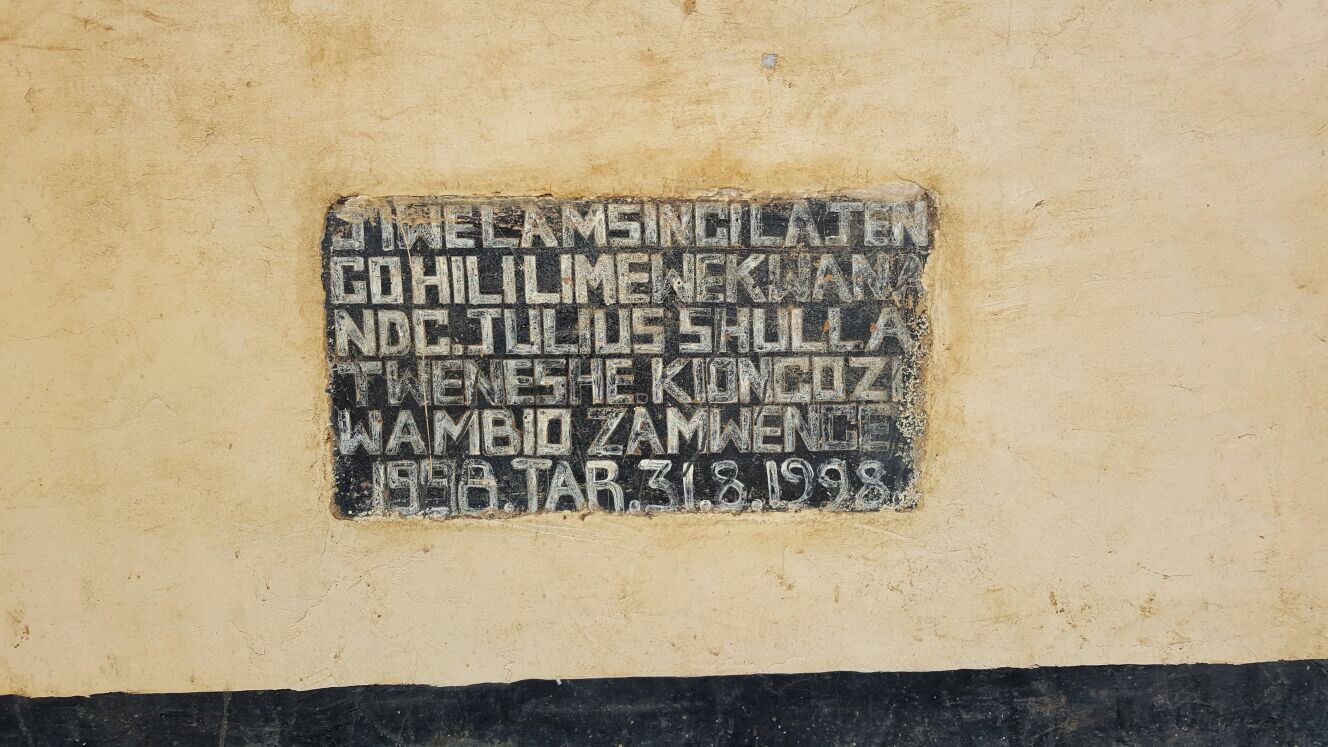 JIWE LA MSINGI LA JEN
GO HILI LIMEWEKWA NA
NDG. JULIUS SHULLA
TWENESHE. KIONGOZI
WA MBIO ZA MWENGE
1998. TAR. 31.8.1998